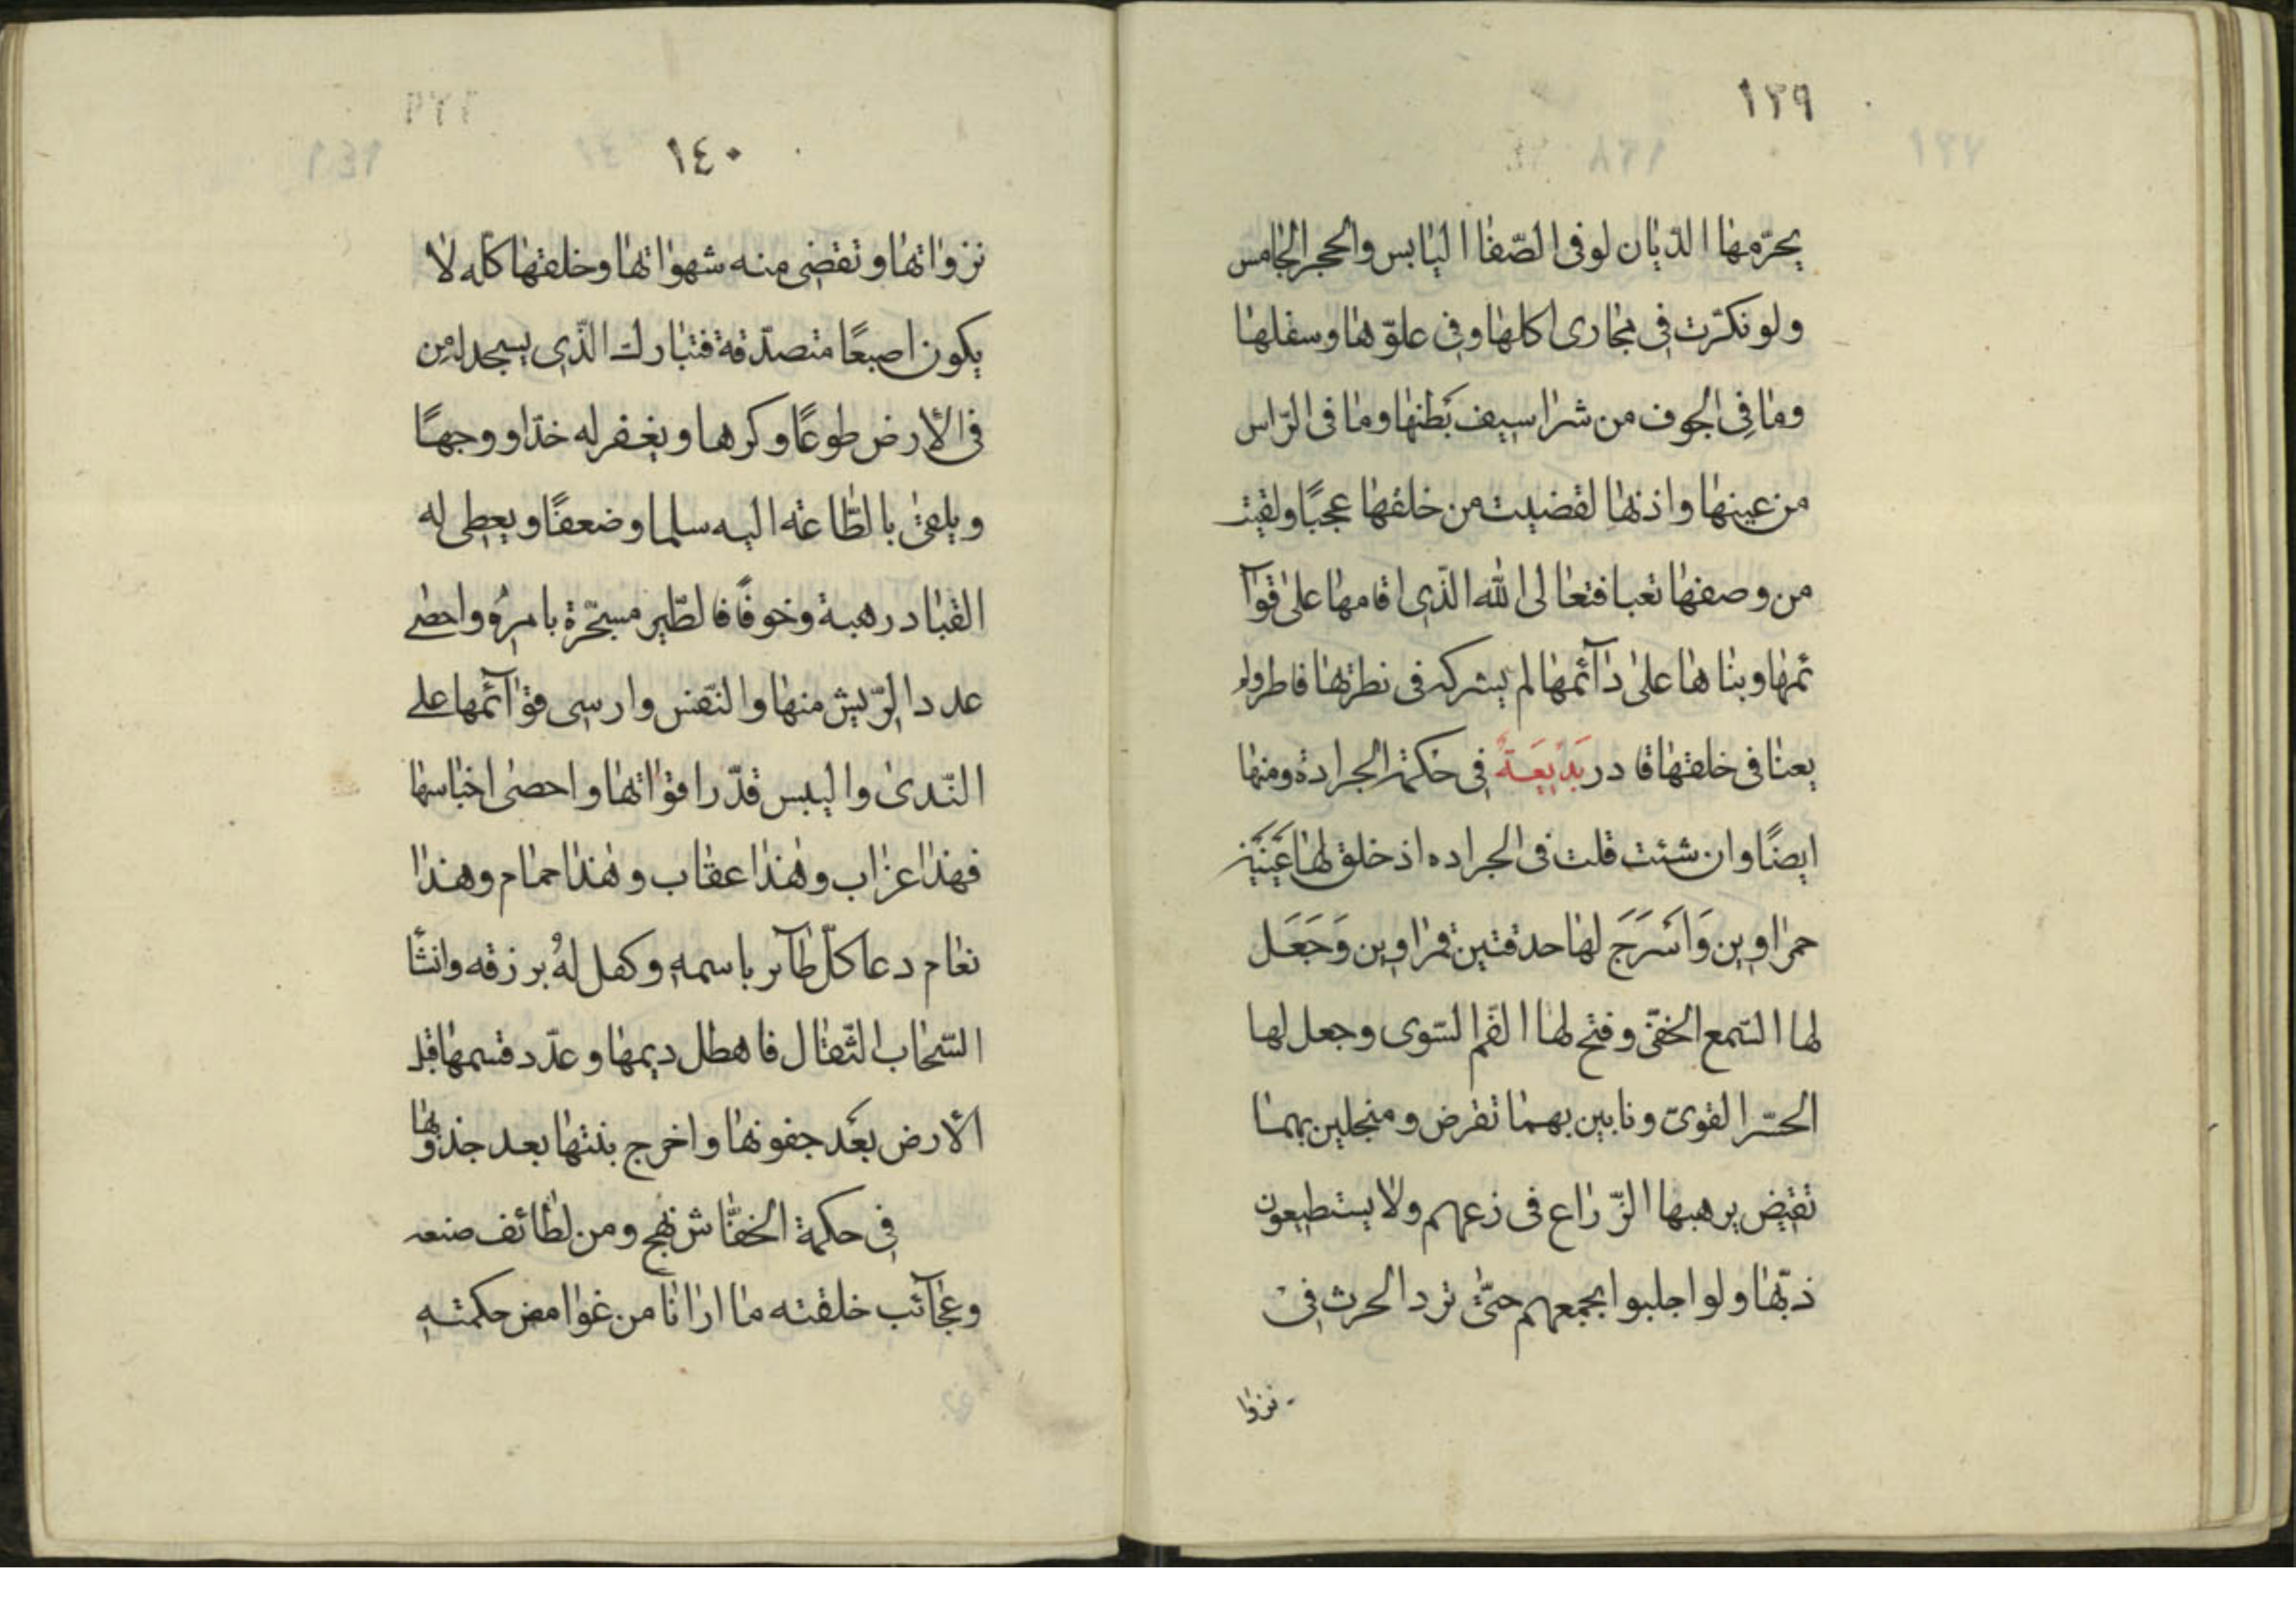 ١٣٩
يحرّمها الدّيان لو فى الصّفا اليابس والحجر الجامس
ولو نكرّت في مجارى اكلها وفي علوّها وسفلها
وما فِي الجوف من شراسيف بَطنها وما فى الرّاس
من عينها واذنها لقضيت من خلقها عجبًا ولقيت
من وصفها تعبا فتعالى الله الذّى اقامها على قوآ
ئمها وبناها على دآئمها لم يشركه فى نطرتها فاطر ولم
يعنا فى خلقها قادر بَدِيعَةٌ فِي حكمة الجرادة ومنها
ايضًا وان شئت قلت فى الجراده اذ خلق لها عَينَيَن
حمراوين وَاَسَرَجَ لها حدقتين قمراوين وَجَعَل
لها السّمع الخفىّ وفتح لها الفم السّوى وجعل لها
الحسّ القوىّ ونابين بهما تقرض ومنجلين بهما
تقيض يرهبها الزّراع فى زعهم ولا يستطيعون
ذبّها ولو اجلبوا بجمعهم حتّى ترد الحرث فِى
نزوا
١٤٠
نزواتها وتقضى منه شهواتها وخلقها كلّه لا
يكون اصبعًا متصدّقة فتبارك الذّى يسجد له من
فى الأرض طوعًا وكرها ويغفر له خدّا ووجهًا
ويلقى بالطّاعته اليه سلما وضعفًا ويعطى له
القباد رهبة وخوفًا فالطّير مسخّرة بامره واحصى
عدد الرّيش منها والنّفس وارسى قوآئمها على
النّدى واليبس قدّر اقواتها واحصى اخباسها
فهذا عزاب وهذا عقاب وهذا حمام وهذا
نعام دعا كلّ طآير باسمه وكفل لهُ برزقه وانشأ
السّحاب الثّقال فاهطل ديمها وعدّد قسمها فبل
الأرض بعد جفونها واخرج بنتها بعد جذوبها
فِي حكمة الخفّاش نهج ومن لطائف صنعه
وعجآئب خلقته ما ارانا من غوامض حكمته